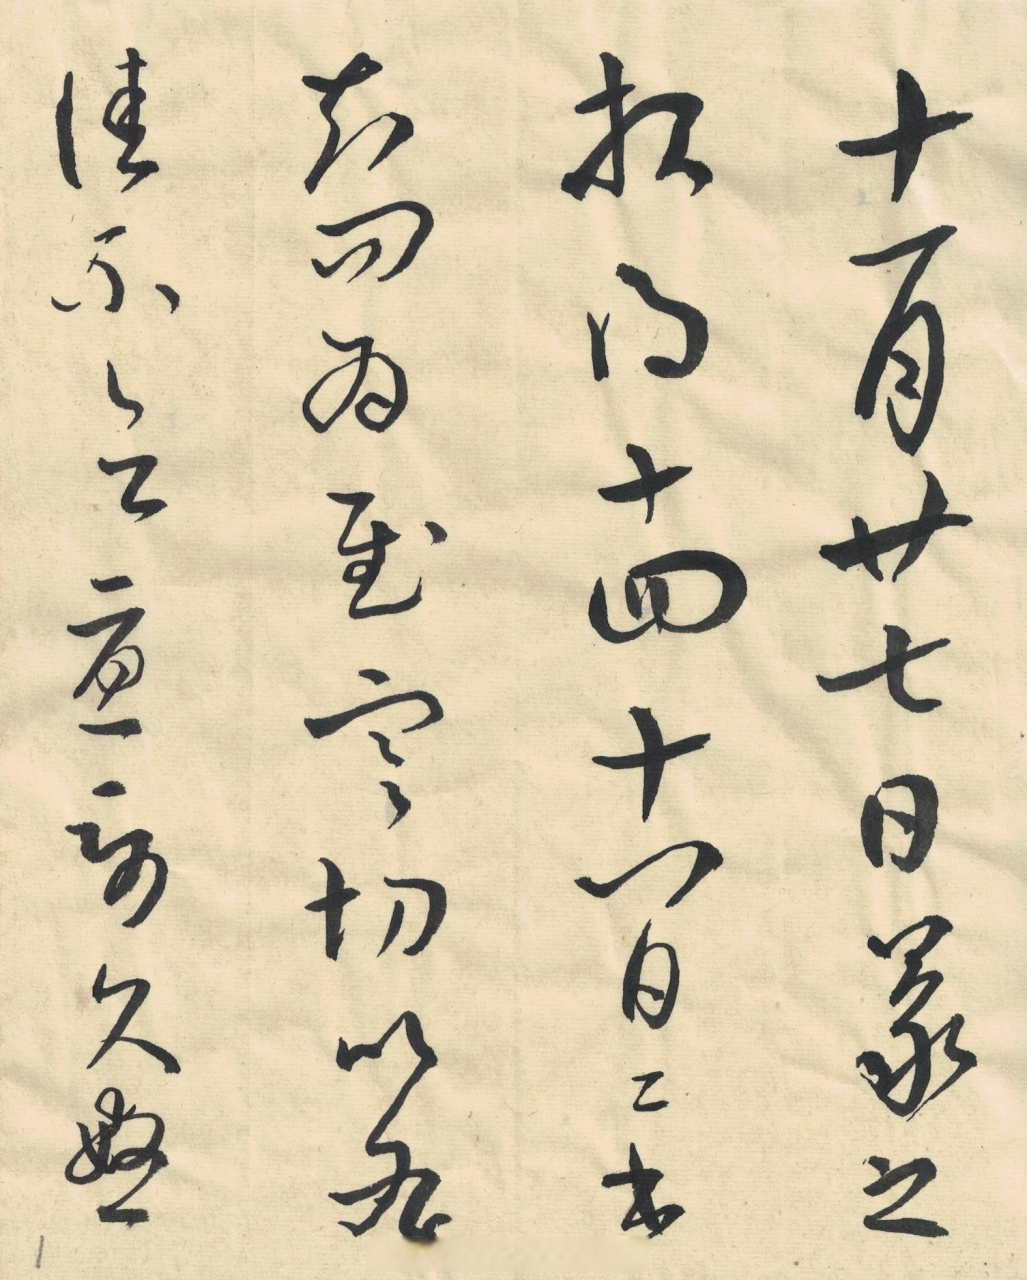 十一月廿七日羲之
報得十四十八日二書
知問為慰寒切比各
佳不念憂勞久懸